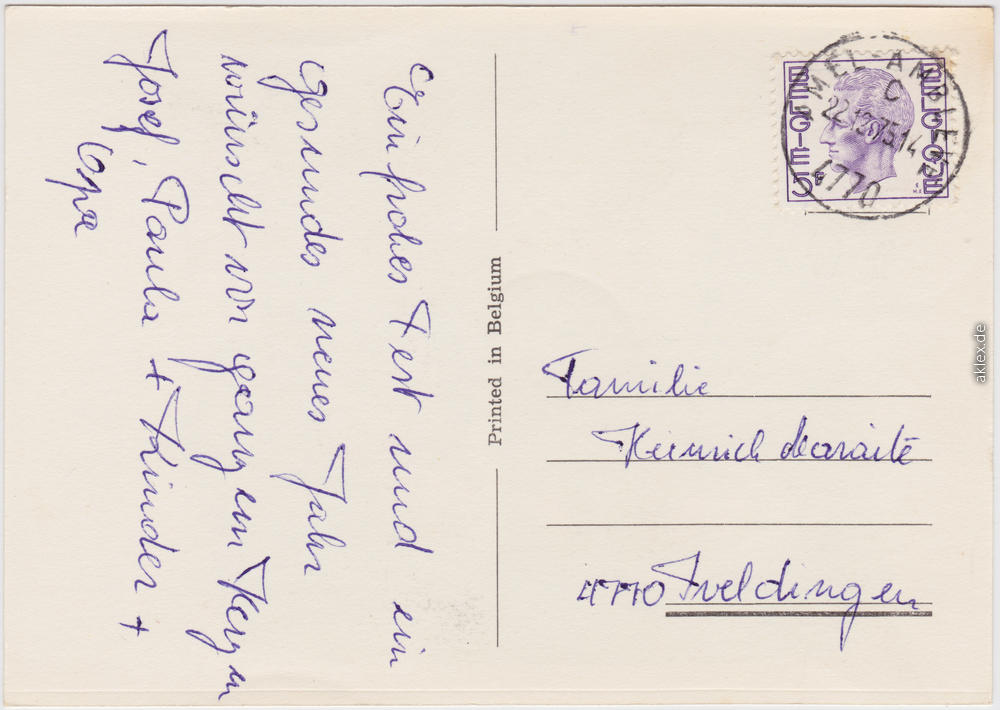 Ein frohes Fest und ein
gesundes neues Jahr
wünscht von ganzem Herzen
Josef, Paula + Kinder +
Opa
Printed in Belgium
BELGIE
BELGIQUE
AMEL-AMBLEVE
C
22-12-75.14
4770
Familie
Heinrich
4770 Iveldingen
aklex.de